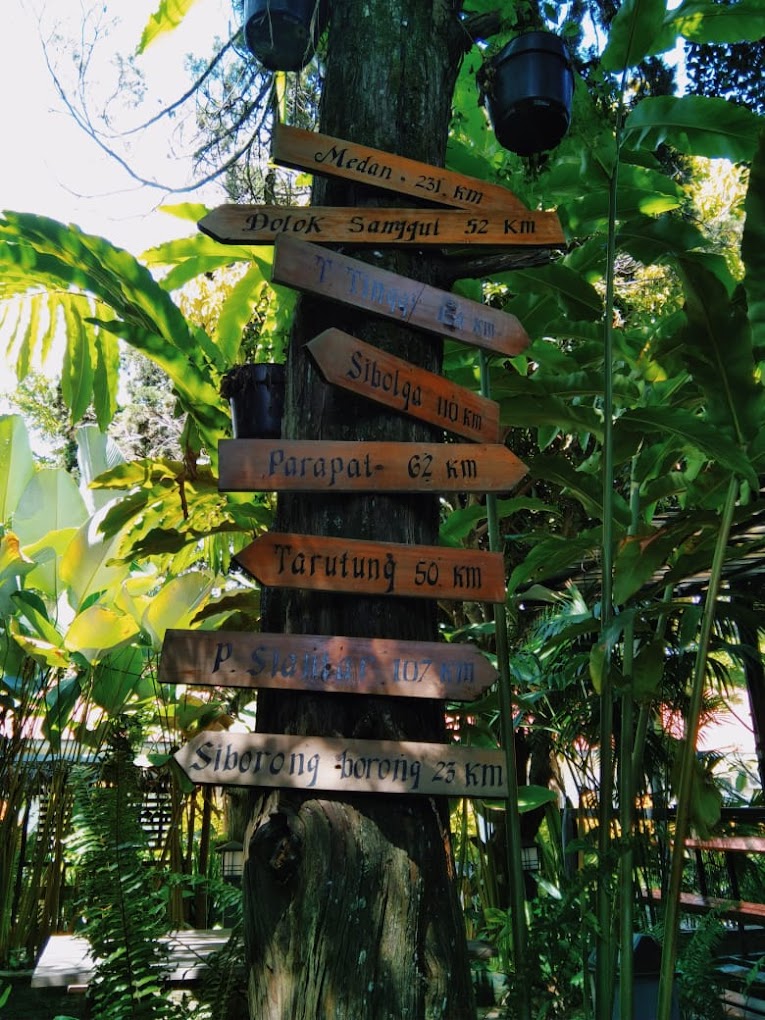 Medan - 231. KM
Dolok Sanggul 52 KM
T. Tinggi KM
Sibolga 110 KM
Parapat- 62 KM
Tarutung 50. KM
P. Siantar 107 KM
Siborong -borong 23 KM